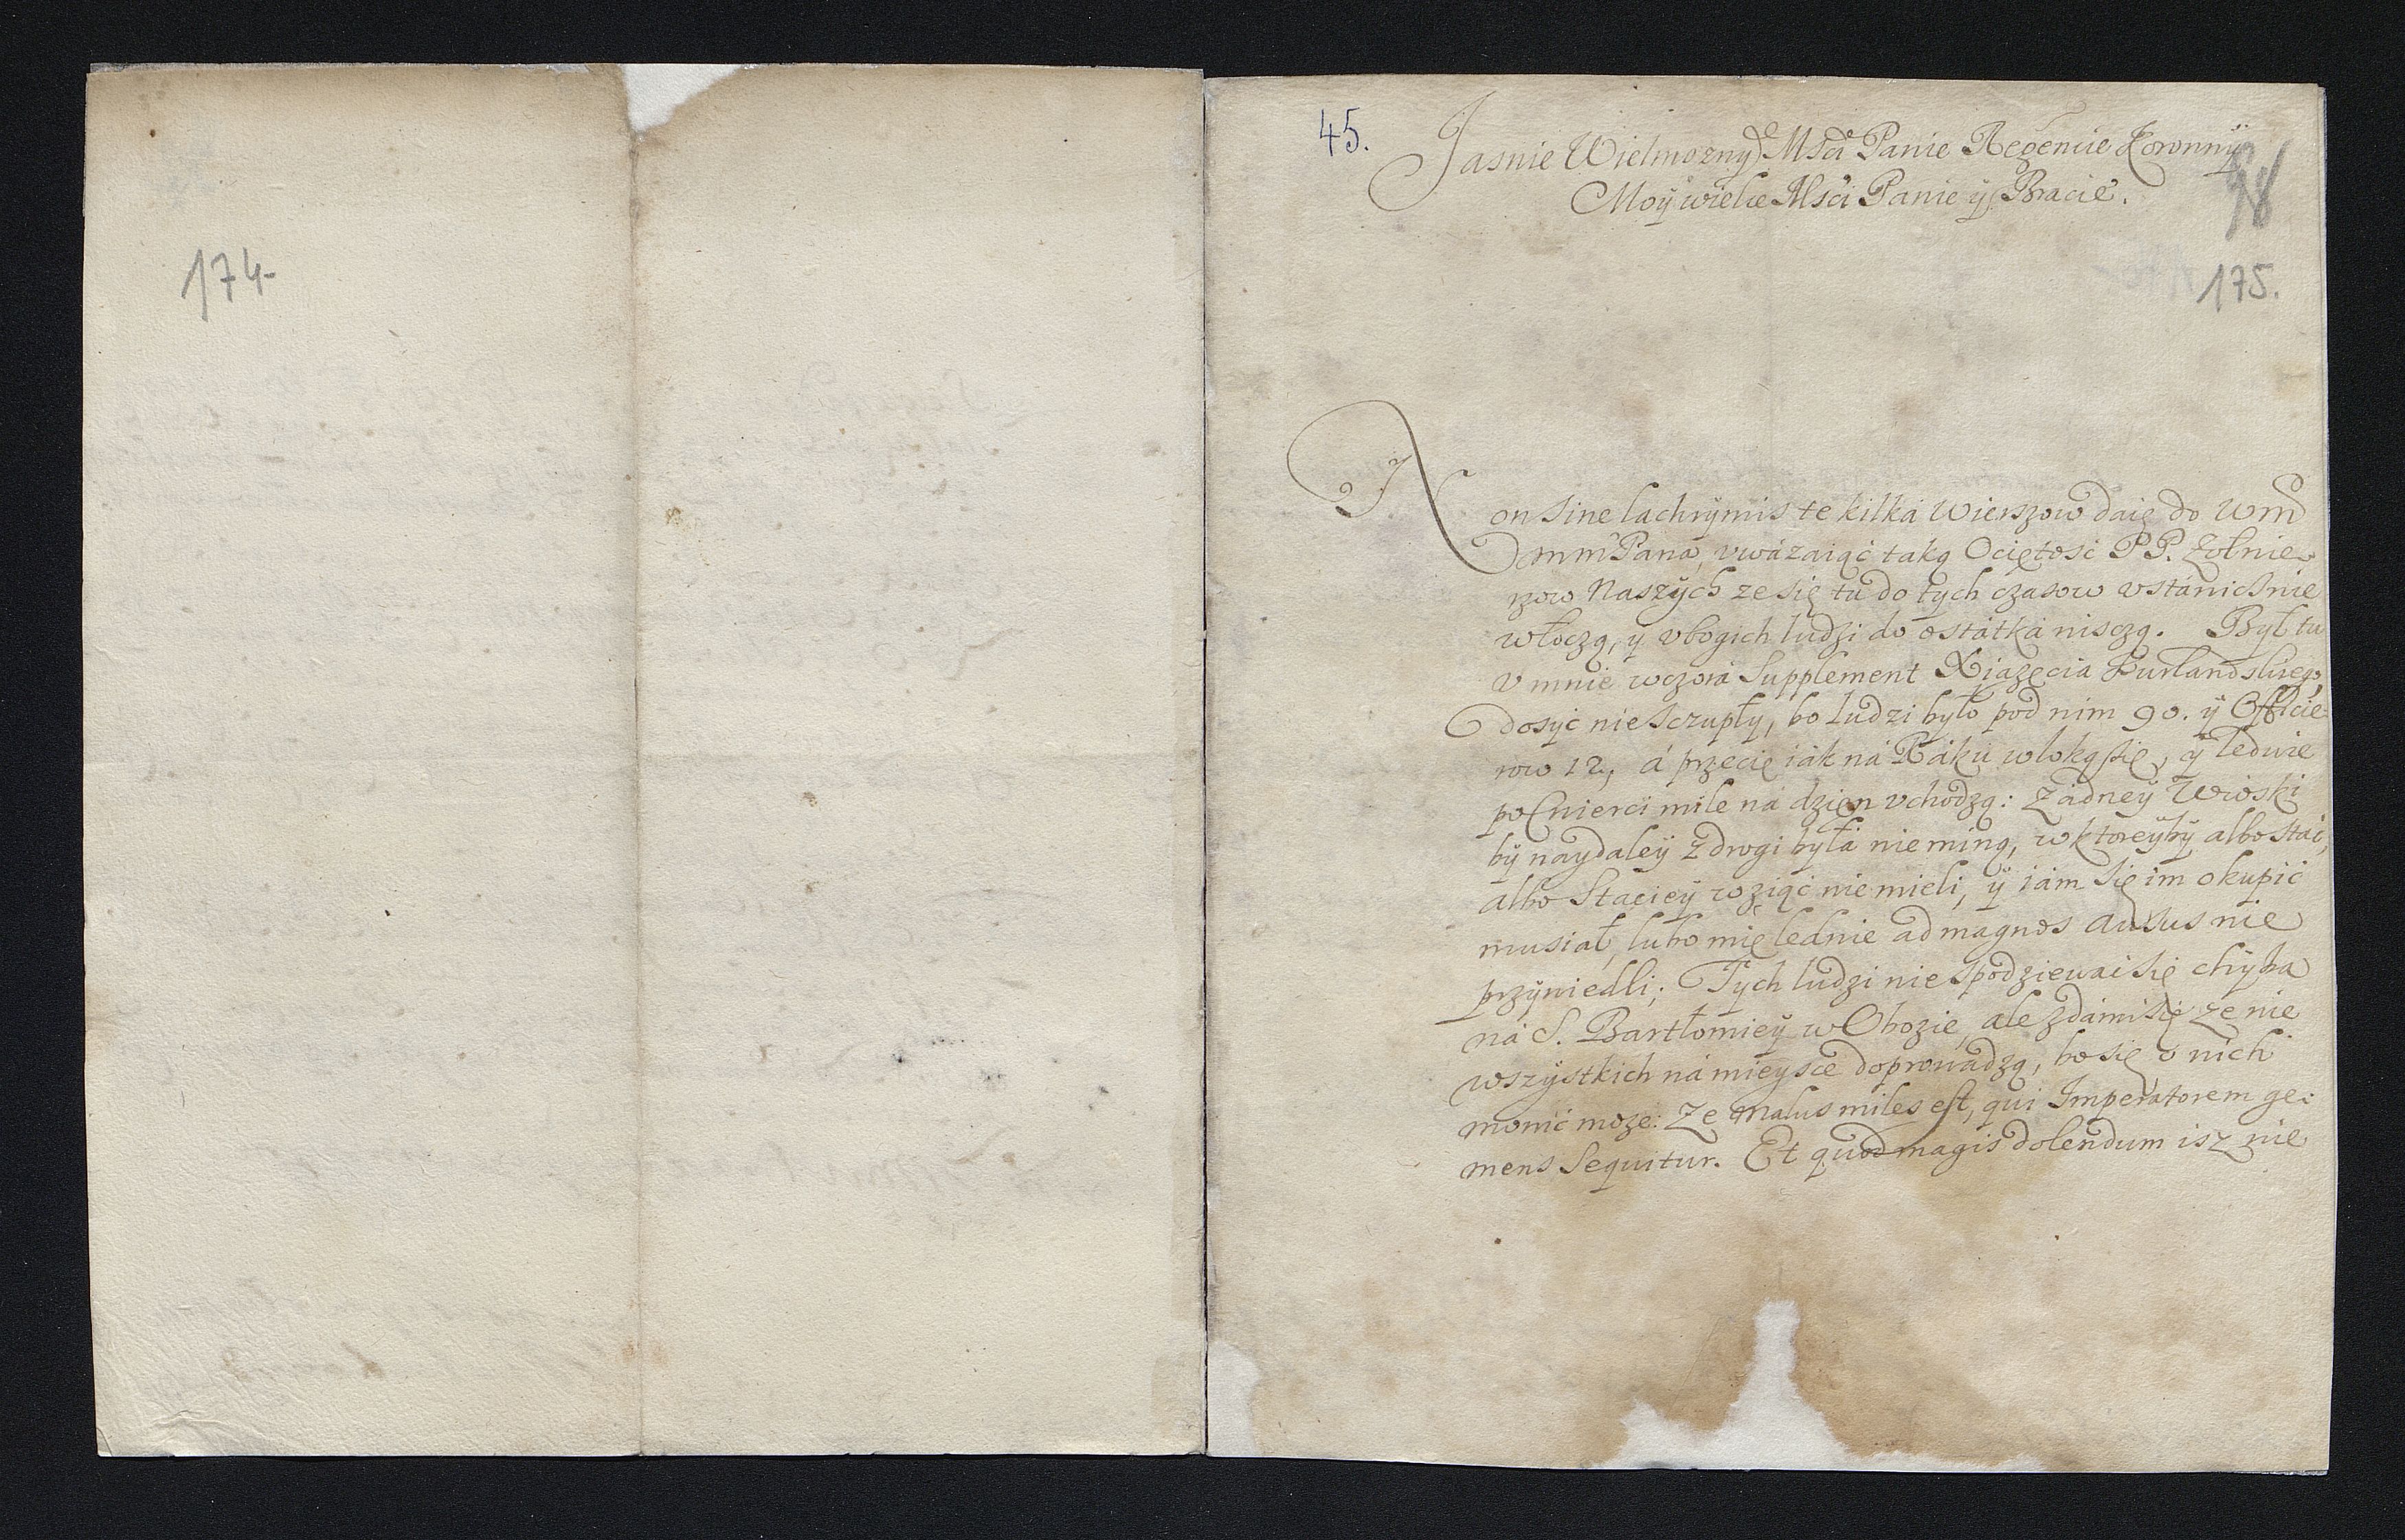 174
45.
Jasnie Wielmozny Msci Panie Regencie Koronny
Moÿ wielce Msci Panie ÿ Bracie.
98
175.
Non sine lachrÿmis te kilka wierszow daię do Wm
mm Pana, vwázaiąć taką Ociętosć P P. Zołnie
rzow Naszÿch ze się tu do tÿch czasow vstanicsnie
włoczą, ÿ vbogich ludzi do ostátká nisczą. Bÿł tu
v mnie wczora Supplement Xiązęcia Kurlandskiego,
dosÿc nie sczupłÿ, bo ludzi bÿło pod nim 90. ÿ Officie
row 12, á przecię iák ná Ráku wloką się, ÿ ledwie
poCwierci mile ná dzien vchodzą: Zádneÿ Wioski
bÿ naÿdaleÿ z drogi bÿła nie miną, w ktoreÿbÿ albo stać,
albo Stacieÿ wziąć nie mieli, ÿ iám się im okupić
musiał, lubo mię ledwie ad magnos ausus nie
przÿwiedli; Tÿch ludzi nie spodziewai się chÿba
ná S. Bartłomieÿ w Obozie, ale zdámisię ze nie
wszÿstkich ná mieÿsce doprowadzą, bo się o nich
mowić moze: Ze malus miles est, qui Imperatorem ge:
mens sequitur. Et quod magis dolendum isz nie